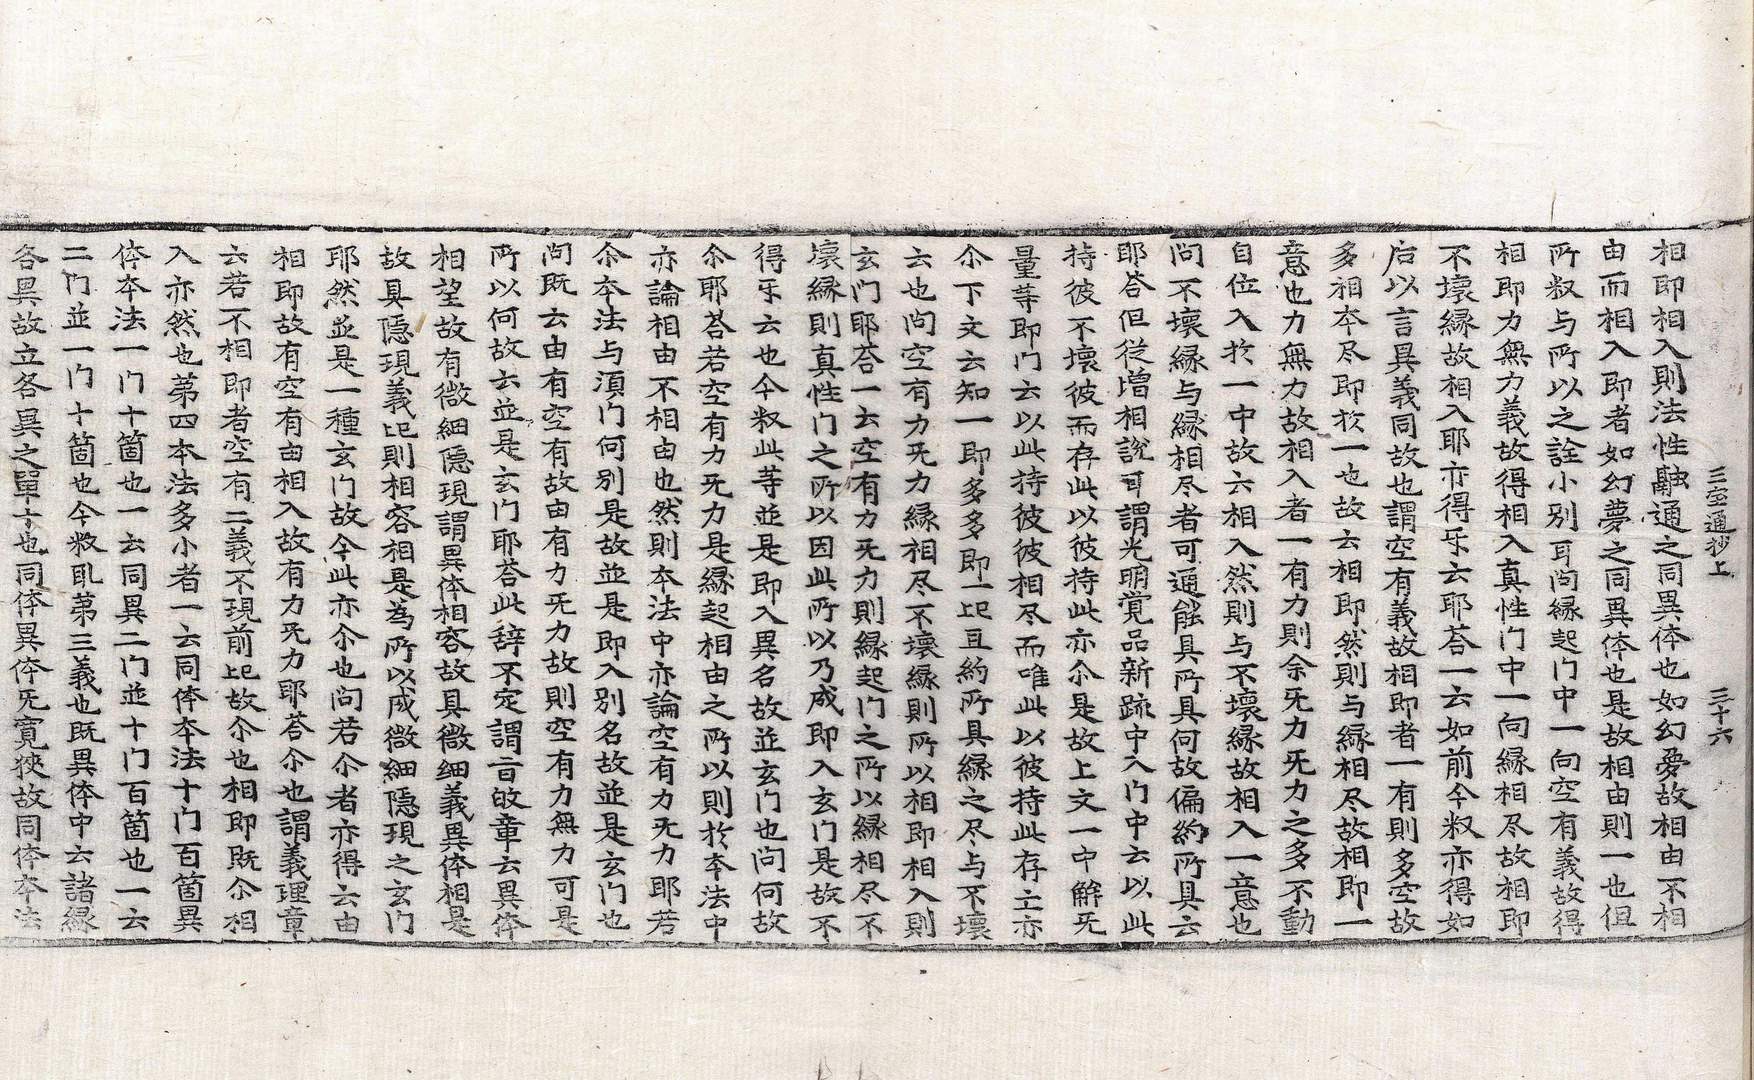 三宝通抄上　三十六
相即相入則法性融通之同異体也如幻夢故相由不相
由而相入即者如幻夢之同異体也是故相由則一也但
所叙与所以之詮小別耳问縁起门中一向空有義故得
相即力無力義故得相入真性门中一向縁相尽故相即
不壞縁故相入耶亦得乐云耶荅一云如前今叙亦得如
后以言具義同故也謂空有義故相即者一有則多空故
多相夲尽即扵一也故云相即然則与縁相尽故相即一
意也力無力故相入者一有力則余旡力旡力之多不動
自位入扵一中故云相入然則与不壞縁故相入一意也
问不壞縁与縁相尽者可通能具所具何故偏約所具云
耶荅但従増相說可謂光明覚品新䟽中入门中云以此
持彼不壞彼而存此以彼持此亦尒是故上文一中解旡
量等即门云以此持彼彼相尽而唯此以彼持此存立亦
尒下文云知一即多多即一㐀且約所具縁之尽与不壞
云也问空有力旡力縁相尽不壞縁則所以相即相入則
玄门耶荅一云空有力旡力則縁起门之所以縁相尽不
壞縁則真性门之所以因此所以乃成即入玄门是故不
得乐云也今叙此等並是即入異名故並玄门也问何故
尒耶荅若空有力旡力是縁起相由之所以則扵夲法中
亦論相由不相由也然則夲法中亦論空有力旡力耶若
尒夲法与湏门何別是故並是即入別名故並是玄门也
问既云由有空有故由有力旡力故則空有力無力可是
所以何故云並是玄门耶荅此辞不定謂言的章云異体
相望故有微細隠現謂異体相容故具微细義異体相是
故具隠現義㐀則相容相是為所以成微細隠現之玄门
耶然並是一種玄门故今此亦尒也问若尒者亦得云由
相即故有空有由相入故有力旡力耶荅尒也謂義理章
云若不相即者空有二義不現前㐀故尒也相即既尒相
入亦然也第四本法多小者一云同体夲法十门百箇異
体夲法一门十箇也一云同異二门並十门百箇也一云
二门並一门十箇也今叙㫪第三義也既異体中云諸縁
各異故立各異之單十也同体異体旡寛狹故同体夲法